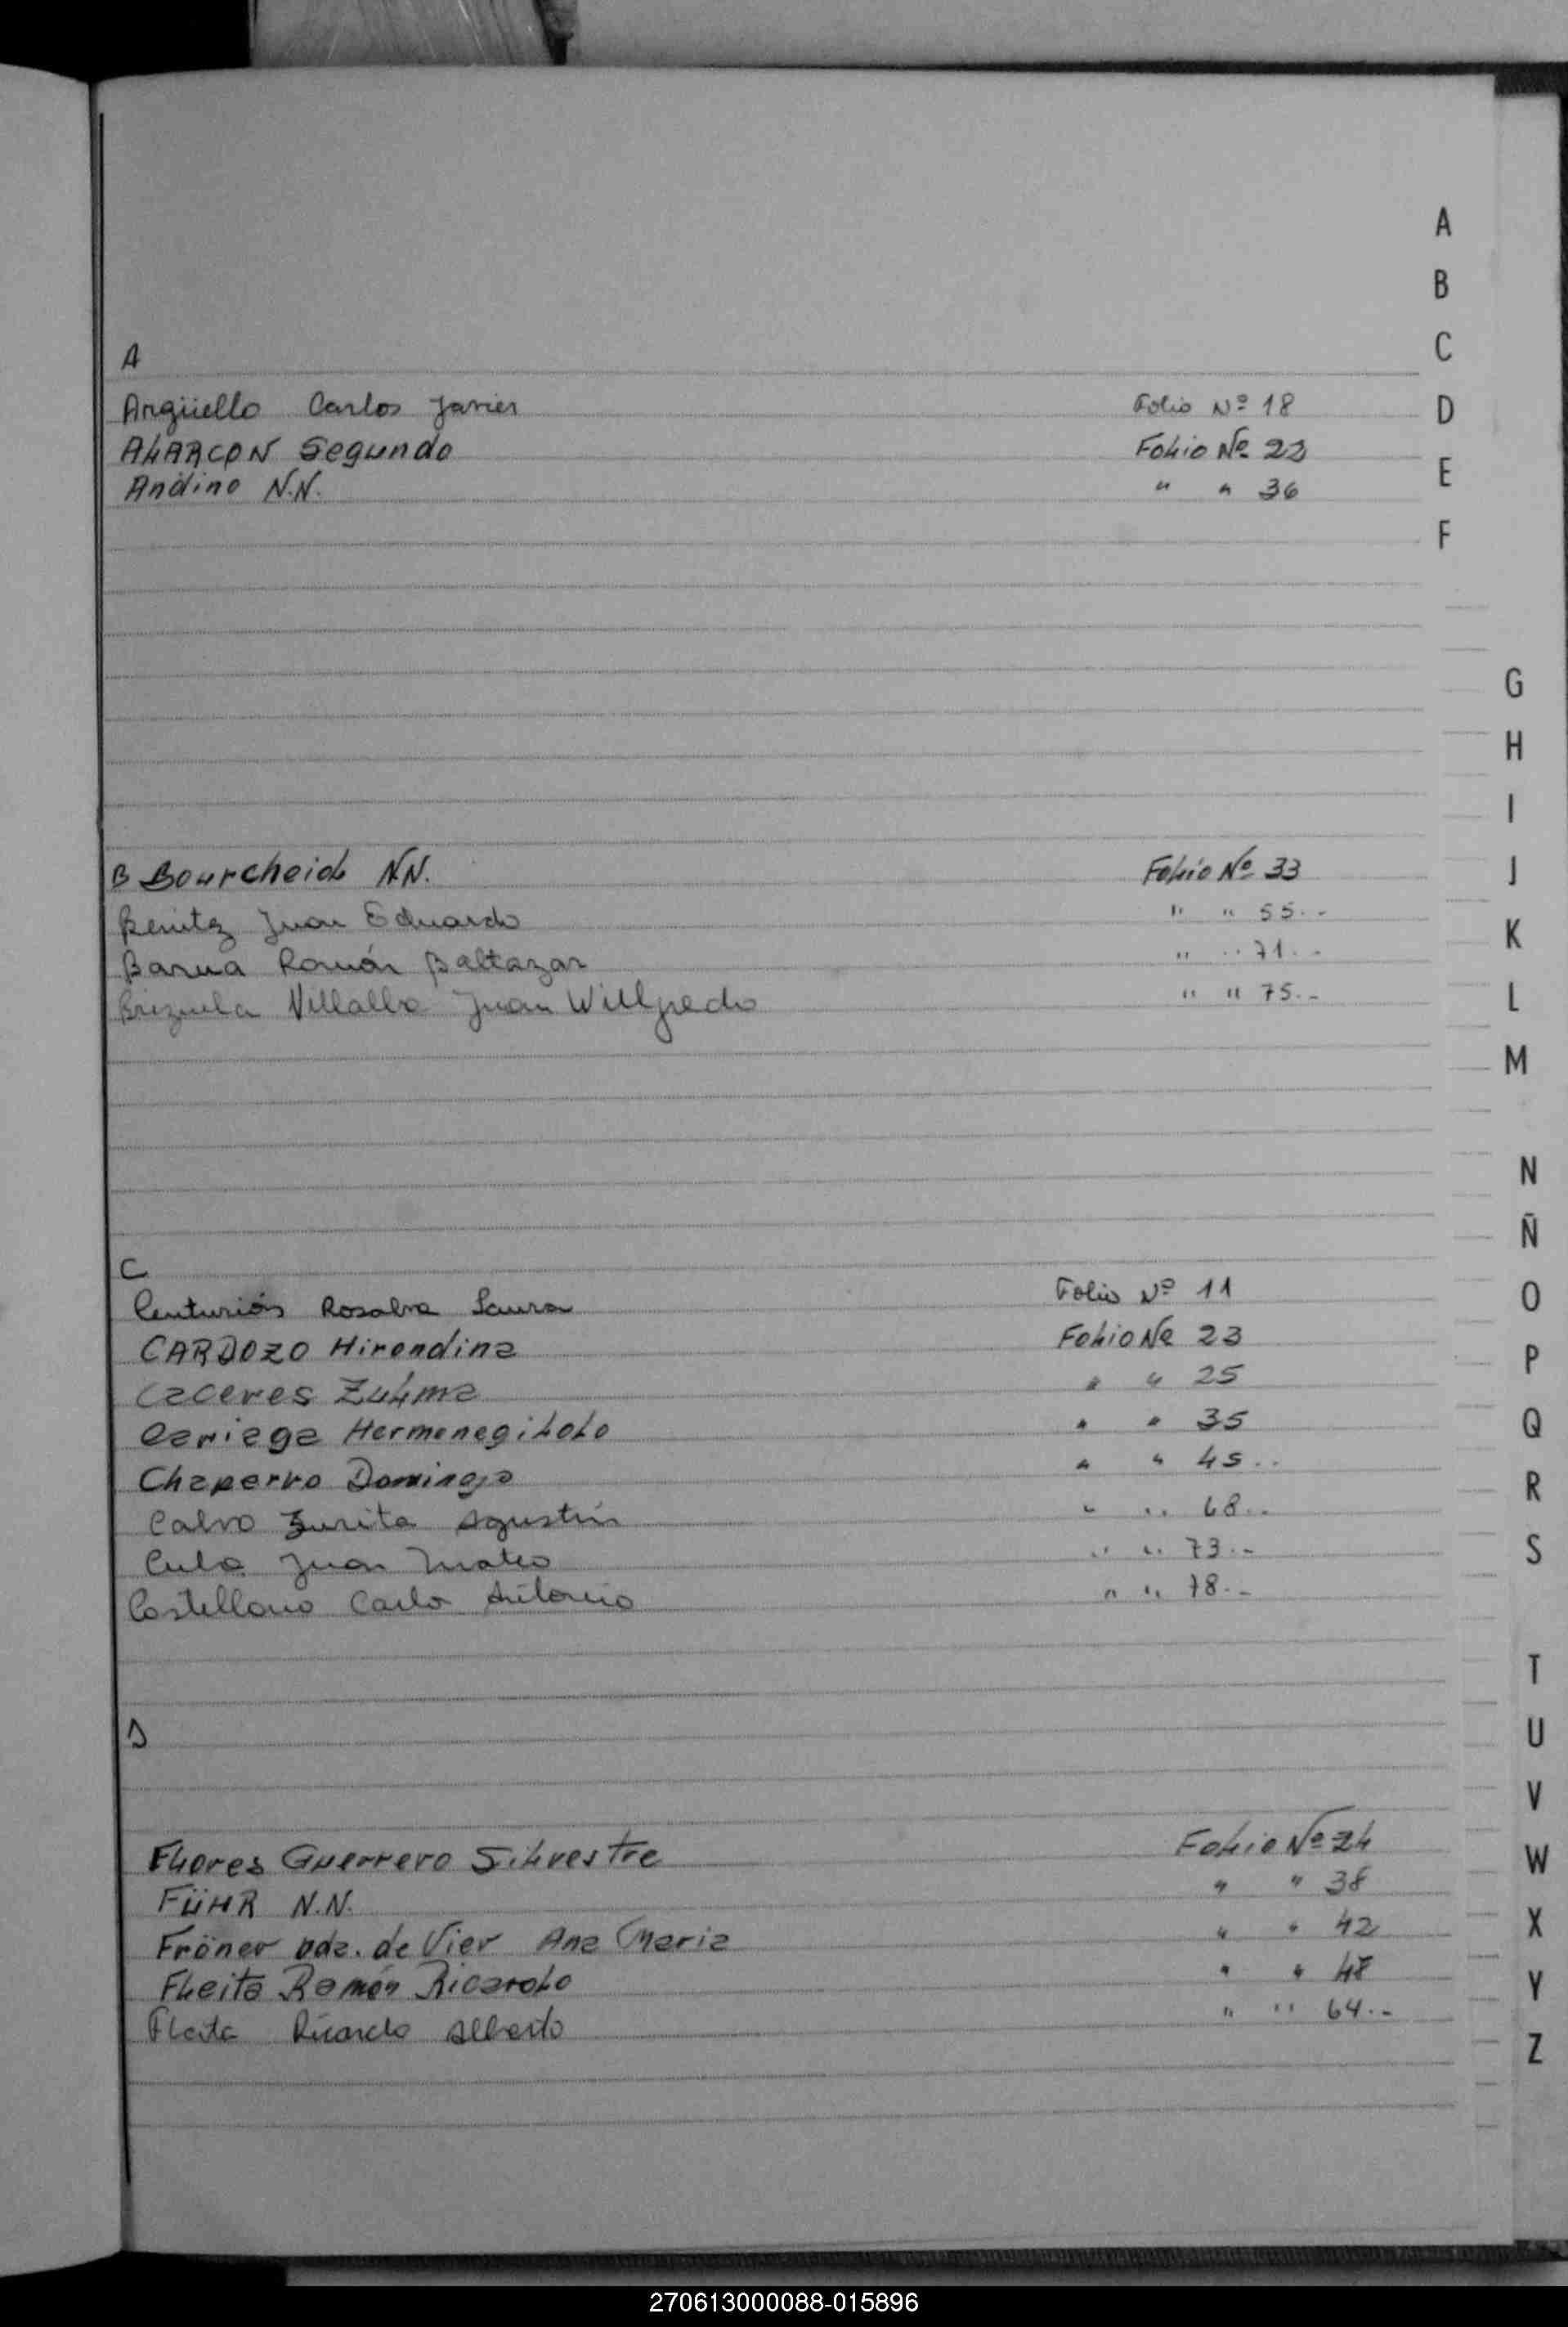 A
Argüello Carlos Javier Folio Nº 18
ALARCON Segundo Folio Nº 22
Andino N.N. " " 36
B Bourcheid N.N. Folio Nº 33
Benitez Juan Eduardo " " 55.-
Barua Román Baltazar " " 71.-
Brizuela Villalba Juan Willfredo " " 75.-
C
Centurión Rosalva Laura Folio Nº 11
CARDOZO Hirondina Folio Nº 23
Caceres Zulma " " 25
Cariaga Hermenegildo " " 35
Chaperro Domingo " " 45..
Calvo Zurita Agustín " " 68..
Juan Mateo " " 73.-
Castellano Carlo Antonio " " 78.-
D
Flores Guerrero Silvestre Folio Nº 24
FÜHR N.N. " " 38
Fröner vda. de Vier Ana Maria " " 42
Fleita Ramón Ricardo " "
Fleita Ricardo Alberto " " 64.-
A
B
C
D
E
F
G
H
I
J
K
L
M
N
Ñ
O
P
Q
R
S
T
U
V
W
X
Y
Z
270613000088-015896